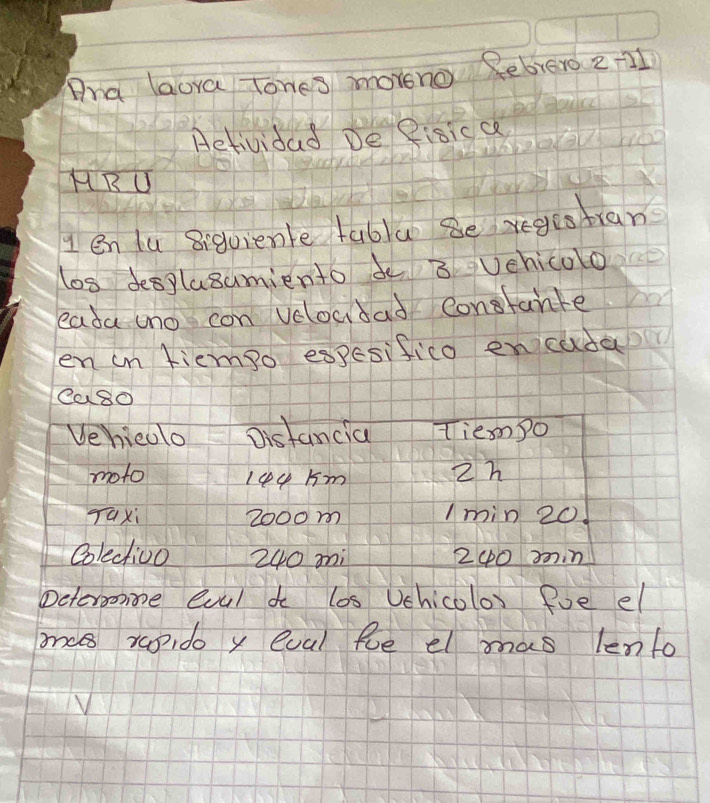 Ana laora Torres moreno Febrero 2-11
Actividad De Fisica
MRU
1 en la siguiente tabla se registran
los desplasamiento de 3 vehicolo
cada uno con velocidad constante
en un tiempo espesifico en cada
caso
Vehiculo Distancia Tiempo
moto 144 Km 2 h
Taxi 2000 m 1 min 20.
Colectivo 240 mi 240 min
Determine cual de los vehicolos fue el
mas rapido y cual fue el mas lento
V